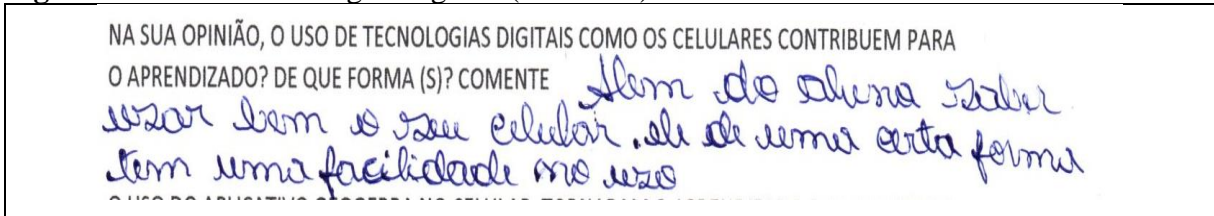 NA SUA OPINIÃO, O USO DE TECNOLOGIAS DIGITAIS COMO OS CELULARES CONTRIBUEM PARA
O APRENDIZADO? DE QUE FORMA (S)? COMENTE Alem do aluno saber
usar bem o seu celular. ele de uma certa forma
tem uma facilidade no uso